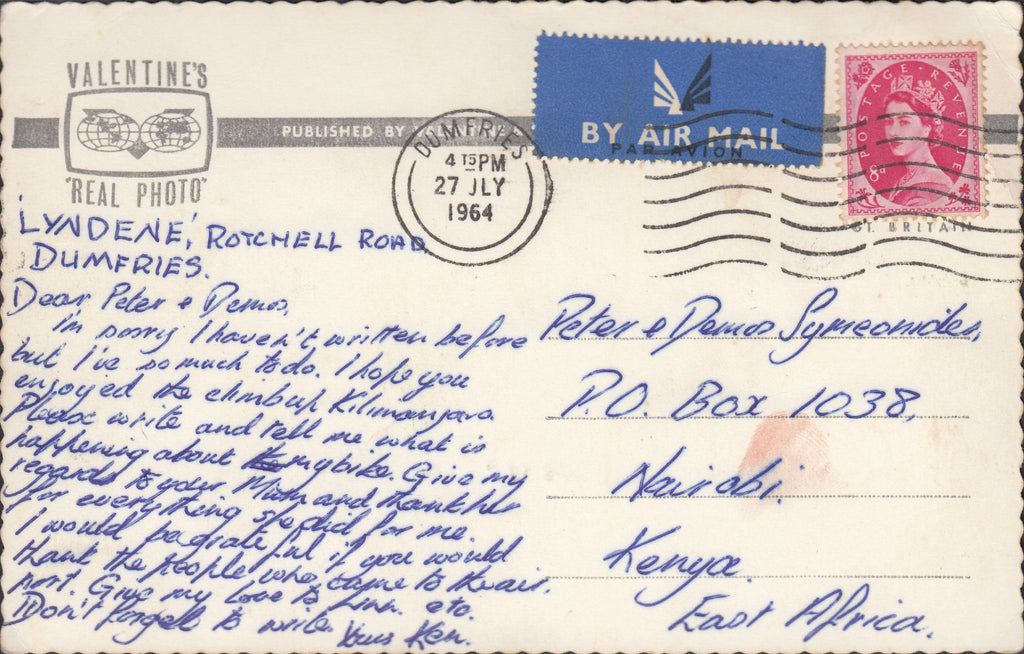 VALENTINE'S
"REAL PHOTO"
PUBLISHED BY
DUMFRIES
4 15 PM
27 JLY
1964
BY AIR MAIL
PAR AVION
POSTAGE REVENUE
8d
GT. BRITAIN
'LYNDENE,' ROTCHELL ROAD
DUMFRIES.
Dear Peter & Demos,
I'm sorry I haven't written before
but I've so much to do. I hope you
enjoyed the climb up Kilimanjaro.
Please write and tell me what is
happening about my bike. Give my
regards to your Mum and thank her
for everything she did for me.
I would be grateful if you would
thank the people who came to the air.
port. Give my love to Linn. etc.
Don't forget to write.
Yours Ken.
Peter & Demos Symeonides,
P.O. Box 1038,
Nairobi,
Kenya.
East Africa.